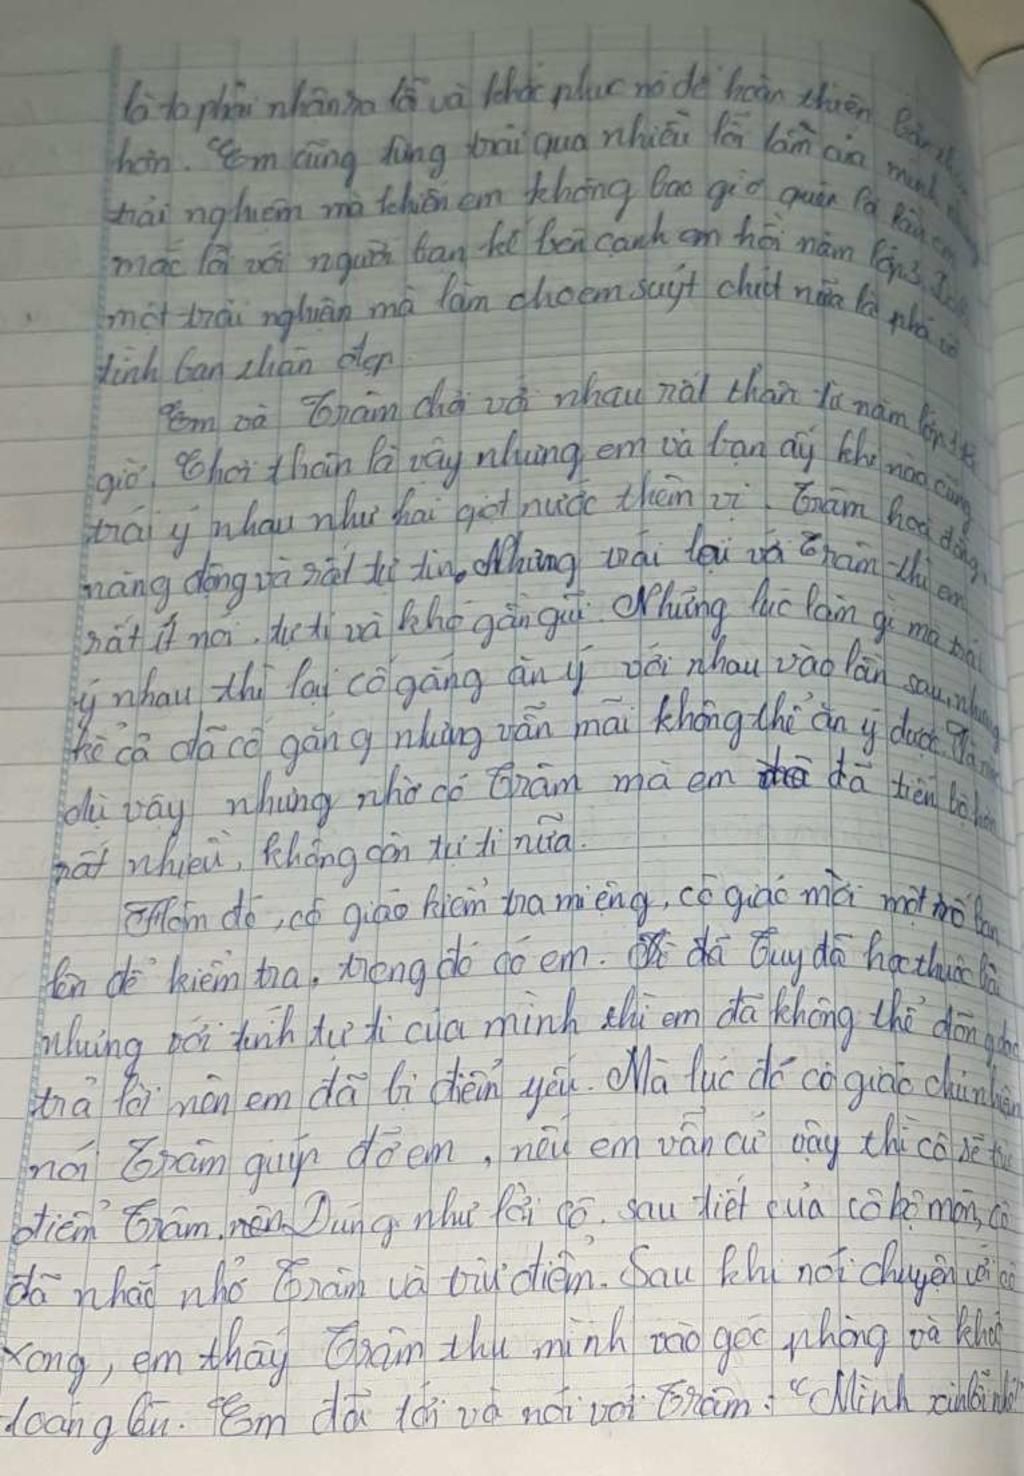 là ta phải nhận ra lỗi và khắc phục nó để hoàn thiện bản thân
hơn. Em cũng từng trải qua nhiều lỗi lầm của mình
trải nghiệm mà khiến em không bao giờ quên là lần em
mắc lỗi với người bạn kế bên cạnh em hồi năm lớp 3.
một trải nghiệm mà làm cho em suýt chút nữa là phá vỡ
tình bạn thân đẹp
Em và Trâm chơi với nhau rất thân từ năm lớp 1
giờ. Chơi thân là vậy nhưng em và bạn ấy khi nào cũng
trái ý nhau như hai giọt nước thêm vị. Trâm hoạt động,
năng động và rất tự tin. Nhưng trái lại với Trâm thì em
rất ít nói, tự ti và khó gần gũi. Những lúc làm gì mà trái
ý nhau thì lại cố gắng ăn ý với nhau vào lần sau, nhưng
kể cả đã cố gắng nhưng vẫn mãi không thể ăn ý được.
dù vậy nhưng nhờ có Trâm mà em đã tiến bộ hơn
rất nhiều, không còn tự ti nữa.
Hôm đó, cô giáo kiểm tra miệng, cô giáo mời một số bạn
lên để kiểm tra, trong đó có em. Tuy đã học thuộc bài
nhưng với tính tự ti của mình thì em đã không thể
trả lời nên em đã bị điểm yếu. Mà lúc đó cô giáo chủ nhiệm
nói Trâm giúp đỡ em, nếu em vẫn cứ vậy thì cô sẽ trừ
điểm Trâm. Đúng như lời cô, sau tiết của cô bộ môn, cô
đã nhắc nhở Trâm và trừ điểm. Sau khi nói chuyện với cô
xong, em thấy Trâm thu mình vào góc phòng và khóc
loang lên. Em đã tới và nói với Trâm: "Mình xin lỗi